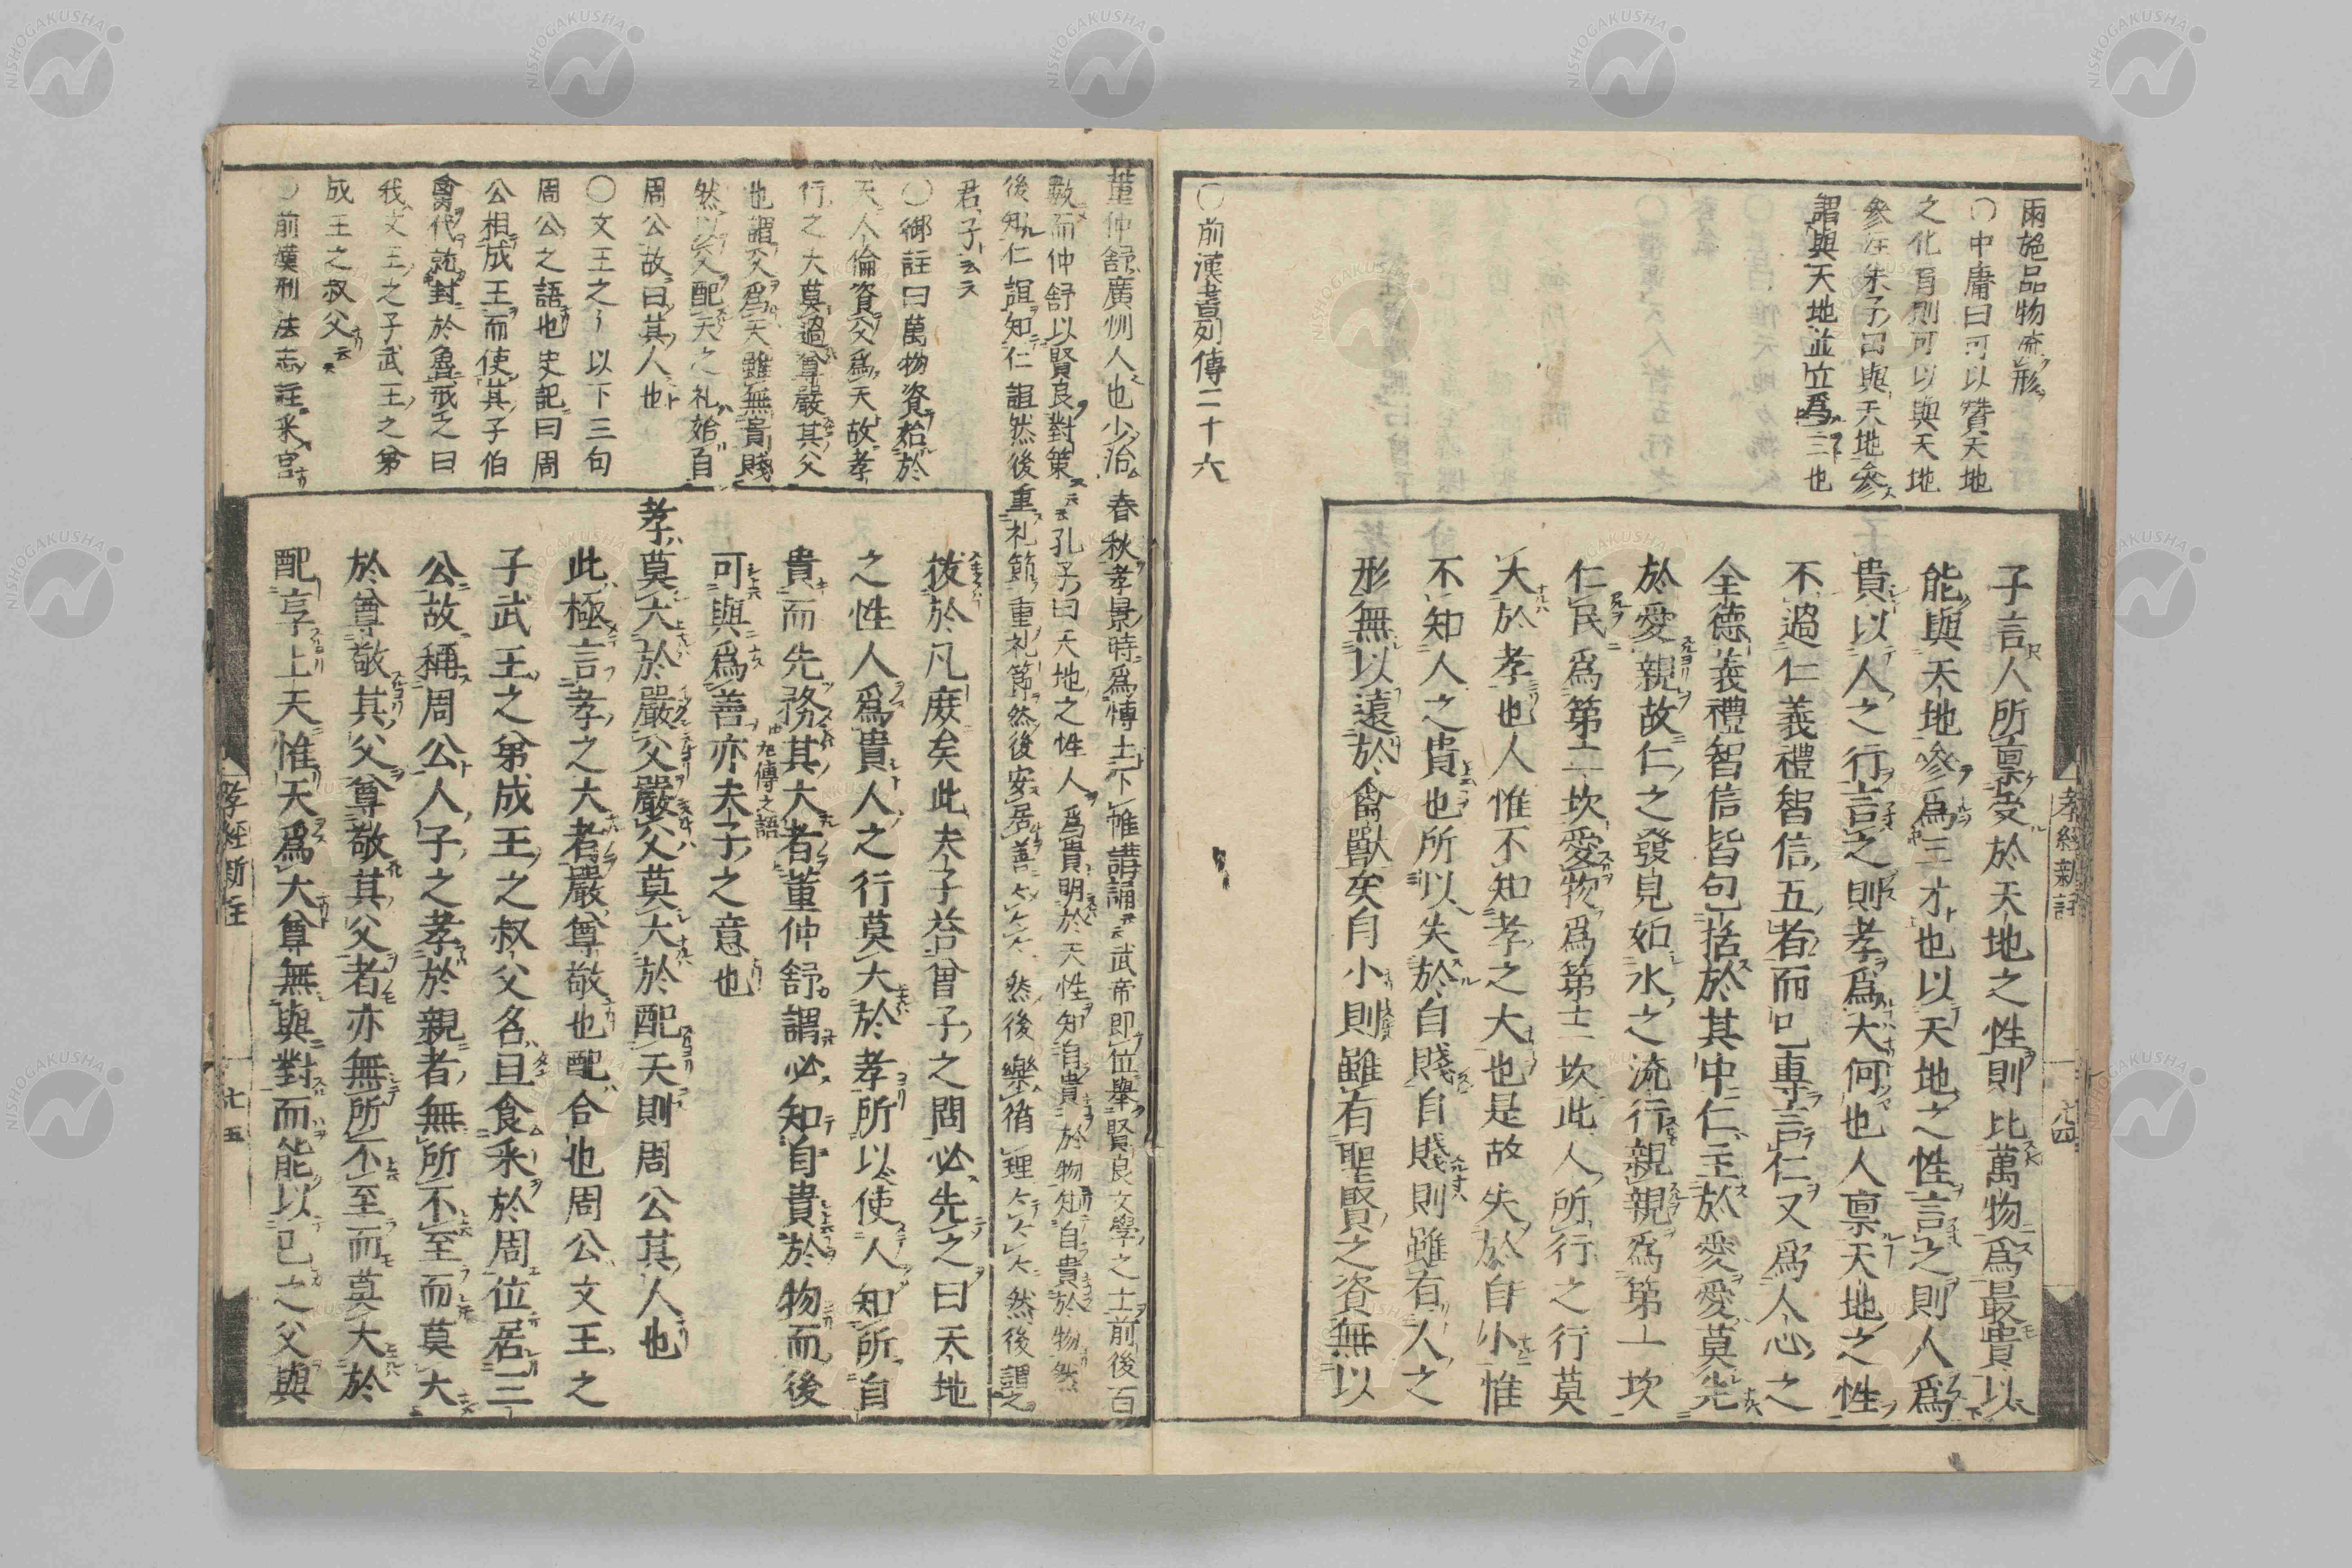 雨施品物流形
〇中庸曰可以贊天地
之化育則可以與天地
參注朱子曰與天地參
謂與天地並立爲三也
〇前漢書列傳二十六
子言人所稟受於天地之性則比萬物爲最貴以
能與天地參爲三才也以天地之性言之則人爲
貴以人之行言之則孝爲大何也人稟天地之性
不過仁義禮智信五者而已專言仁又爲人心之
全德義禮智信皆包括於其中仁主於愛愛莫先
於愛親故仁之發見如水之流行親親爲第一坎
仁民爲第二坎愛物爲第三坎此人所行之行莫
大於孝也人惟不知孝之大也是故失於自小惟
不知人之貴也所以失於自賤自賤則雖有人之
形無以遠於禽獸矣自小則雖有聖賢之資無以
孝經新註
七四
董仲舒廣州人也少治春秋孝景時爲博士下帷講誦云云武帝即位舉賢良文學之士前後百
數而仲舒以賢良對策云云孔子曰天地之性人爲貴明於天性知自貴於物知自貴於物然
後知仁誼知仁誼然後重礼節重礼節然後安處善〻〻〻然後樂循理〻〻〻然後謂之
君子云云
〇御註曰萬物資始於
天人倫資父爲天故孝
行之大莫過尊嚴其父
也謂父爲天雖無貴賤
然以父配天之礼始自
周公故曰其人也
〇文王之〻以下三句
周公之語也史記曰周
公相成王而使其子伯
禽代就封於魯戒之曰
我文王之子武王之弟
成王之叔父云云
〇前漢刑法志註采官
於凡庶矣此夫子荅曾子之問必先之曰天地
之性人爲貴人之行莫大於孝所以使人知所自
貴而先務其大者董仲舒謂必知自貴於物而後
可與爲善亦夫子之意也
孝莫大於嚴父嚴父莫大於配天則周公其人也
此極言孝之大者嚴尊敬也配合也周公文王之
子武王之弟成王之叔父名旦食采於周位居三
公故稱周公人子之孝於親者無所不至而莫大
於尊敬其父尊敬其父者亦無所不至而莫大於
配享上天惟天爲大尊無與對而能以己之父與
孝經新註
七五